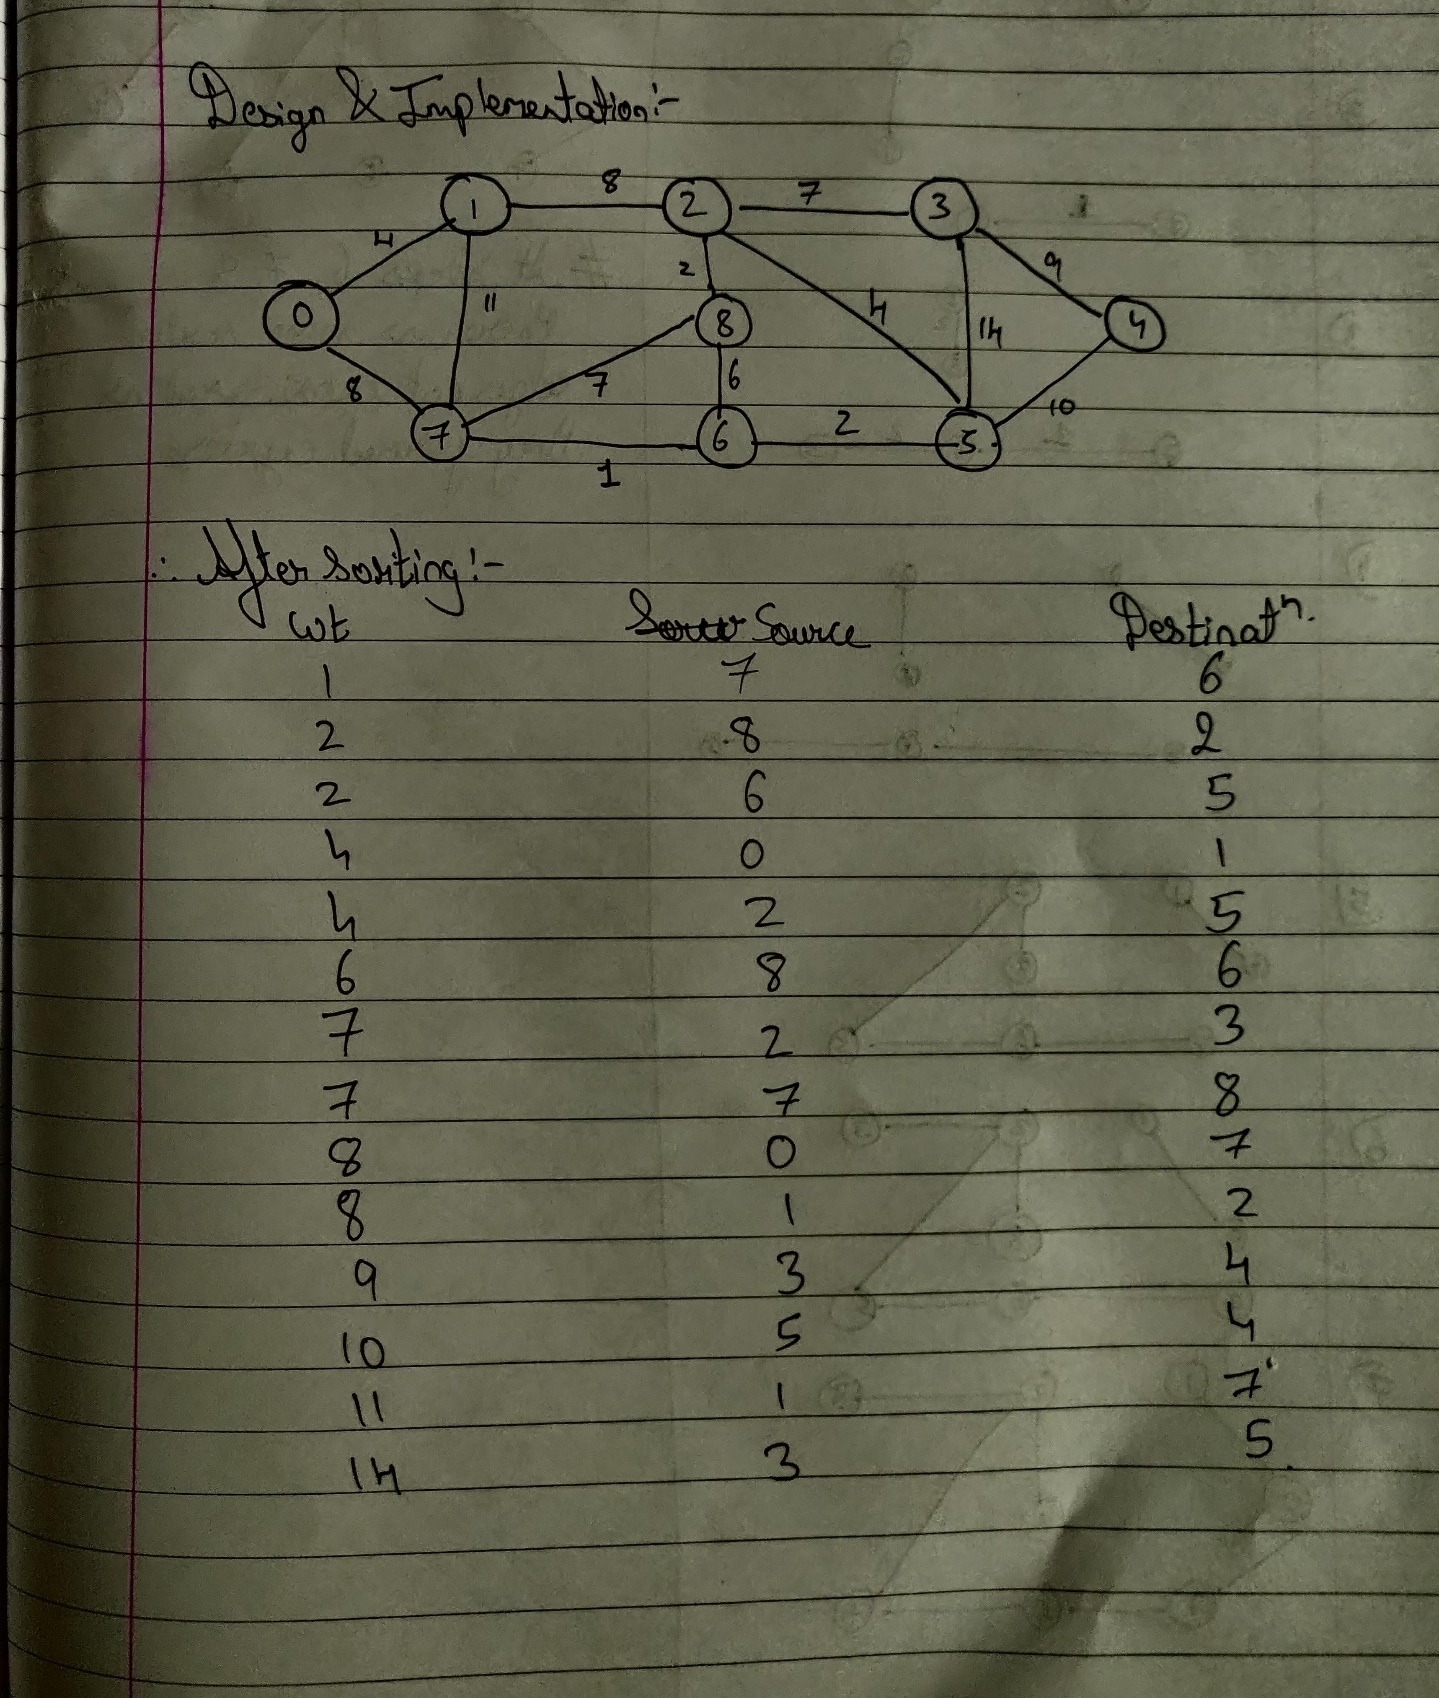 Design & Implementation:-
1 8 2 7 3
4 11 2 4 14 9
0 8 4
8 7 6 10
7 1 6 2 5
∴ After sorting:-
Wt Source Destinatⁿ.
1 7 6
2 8 2
2 6 5
4 0 1
4 2 5
6 8 6
7 2 3
7 7 8
8 0 7
8 1 2
9 3 4
10 5 4
11 1 7
14 3 5